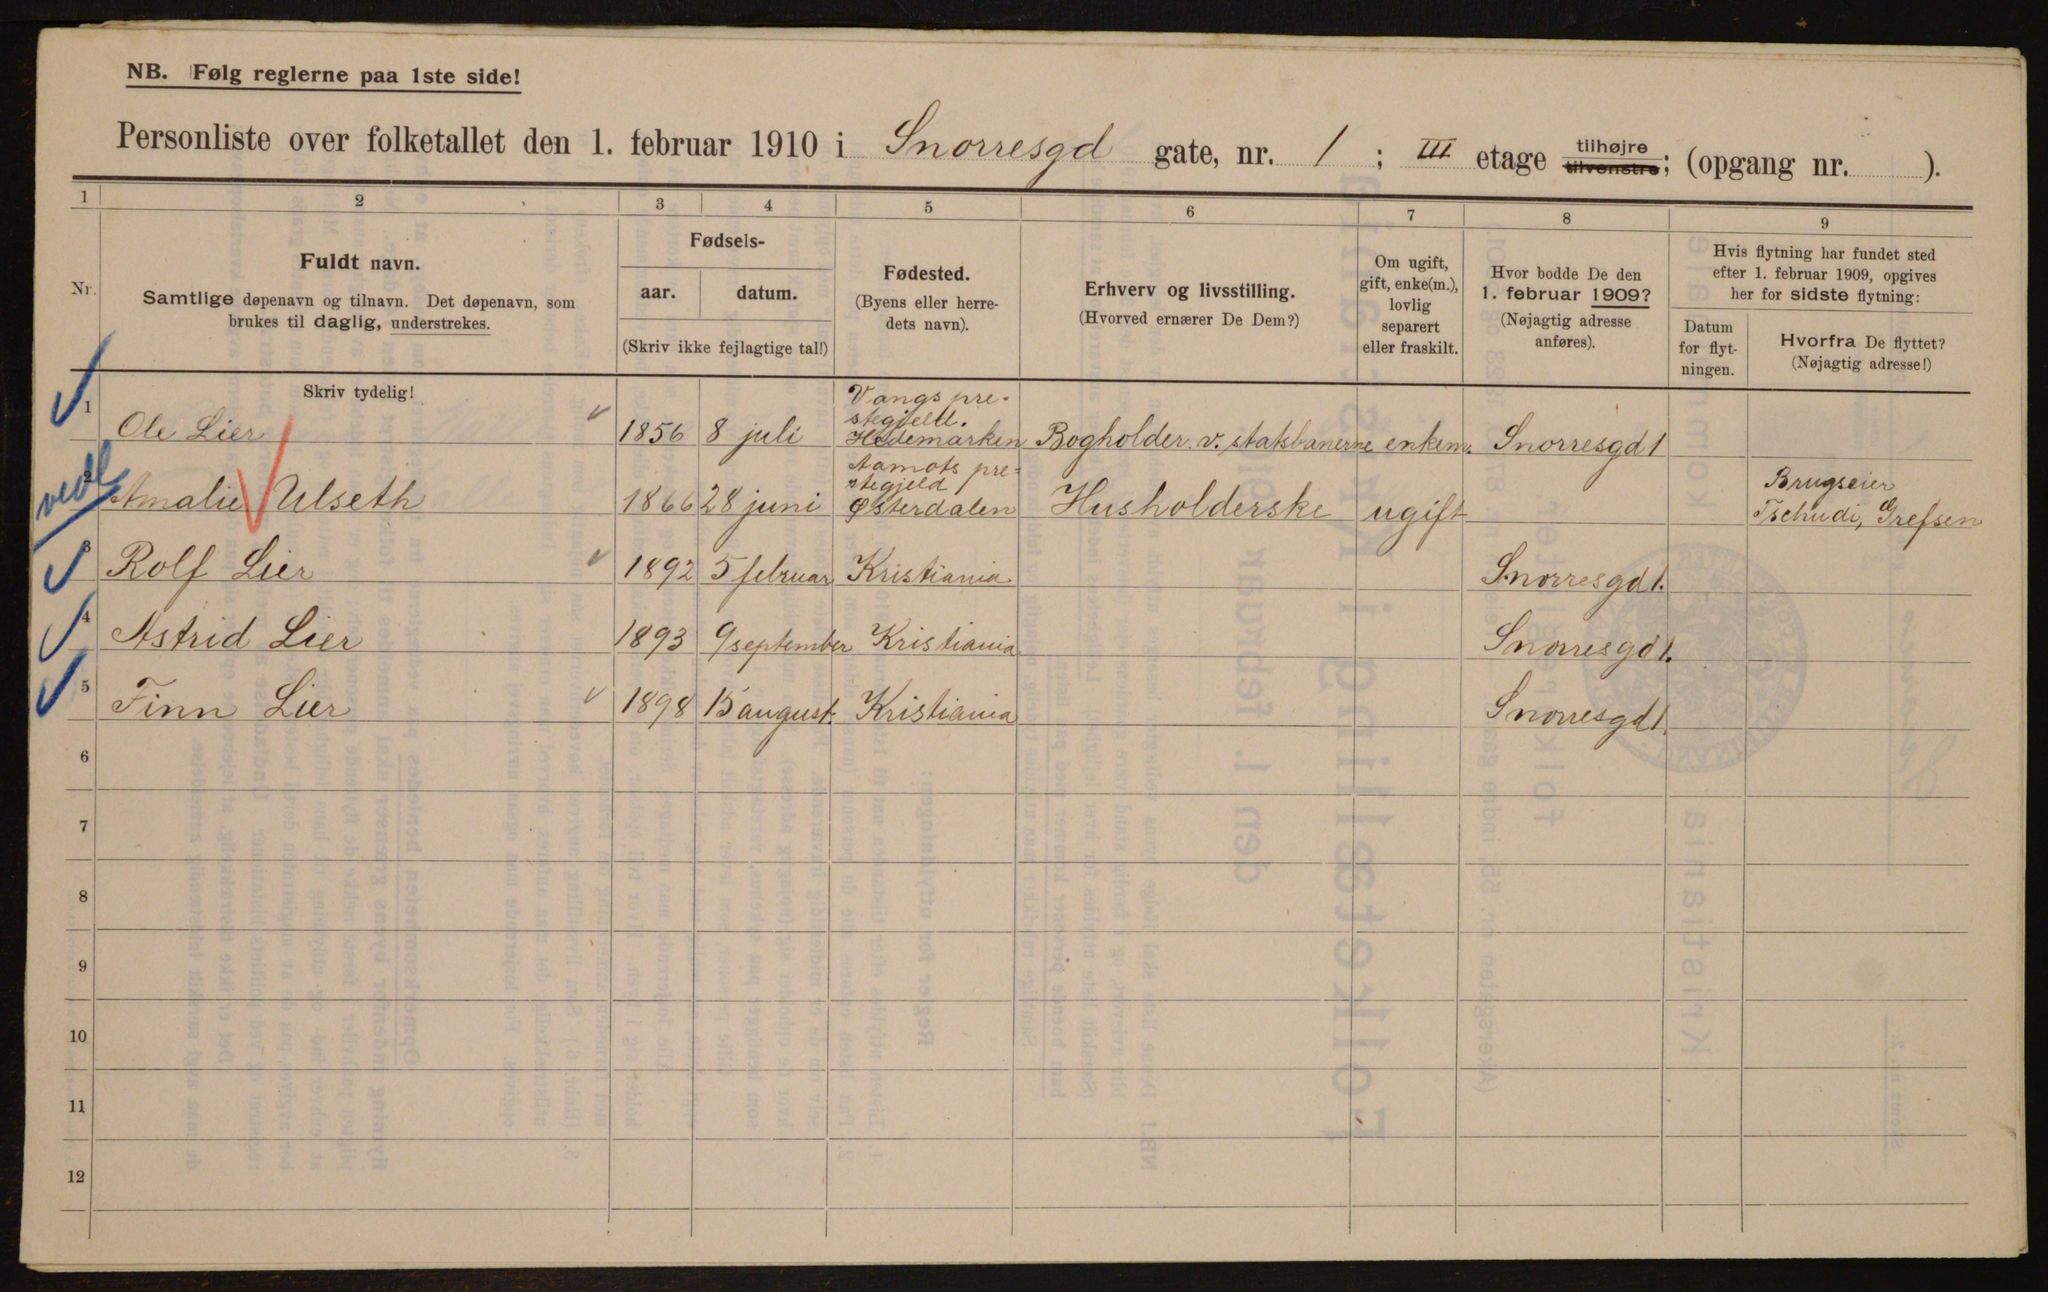 NB. Følg reglerne paa 1ste side!
Personliste over folketallet den 1. februar 1910 i Snorresgd gate, nr. 1 ; III etage tilhøjre tilvenstre; (opgang nr. ).
1 2 3 4 5 6 7 8 9
Nr.
Fuldt navn.
Samtlige døpenavn og tilnavn. Det døpenavn, som
brukes til daglig, understrekes.
Fødsels-
aar. datum.
(Skriv ikke fejlagtige tal!)
Fødested.
(Byens eller herre-
dets navn).
Erhverv og livsstilling.
(Hvorved ernærer De Dem?)
Om ugift,
gift, enke(m.),
lovlig
separert
eller fraskilt.
Hvor bodde De den
1. februar 1909?
(Nøjagtig adresse
anføres).
Hvis flytning har fundet sted
efter 1. februar 1909, opgives
her for sidste flytning:
Datum
for flyt-
ningen.
Hvorfra De flyttet?
(Nøjagtig adresse!)
Skriv tydelig!
1 Ole Lier 1856 8 juli Vangs pre-
stegjeld.
Hedemarken Bogholder v. statsbanerne enkem. Snorresgd 1
2 Amalie Ulseth 1866 28 juni Aamots pre-
stegjeld
Østerdalen Husholderske ugift Brugseier
Tschudi, Grefsen
3 Rolf Lier 1892 5 februar Kristiania Snorresgd 1.
4 Astrid Lier 1893 9 september Kristiania Snorresgd 1.
5 Finn Lier 1898 15 august Kristiania Snorresgd 1.
6
7
8
9
10
11
12